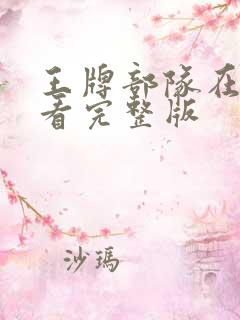 王牌部队在
看完整版
沙玛